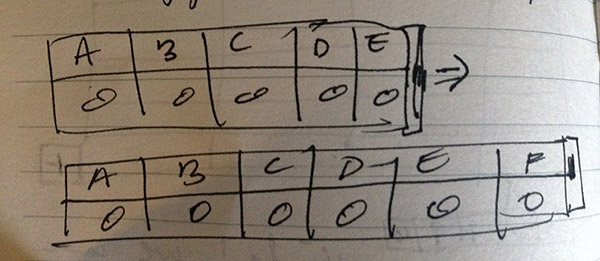 A B C D E
0 0 0 0 0
A B C D E F
0 0 0 0 0 0